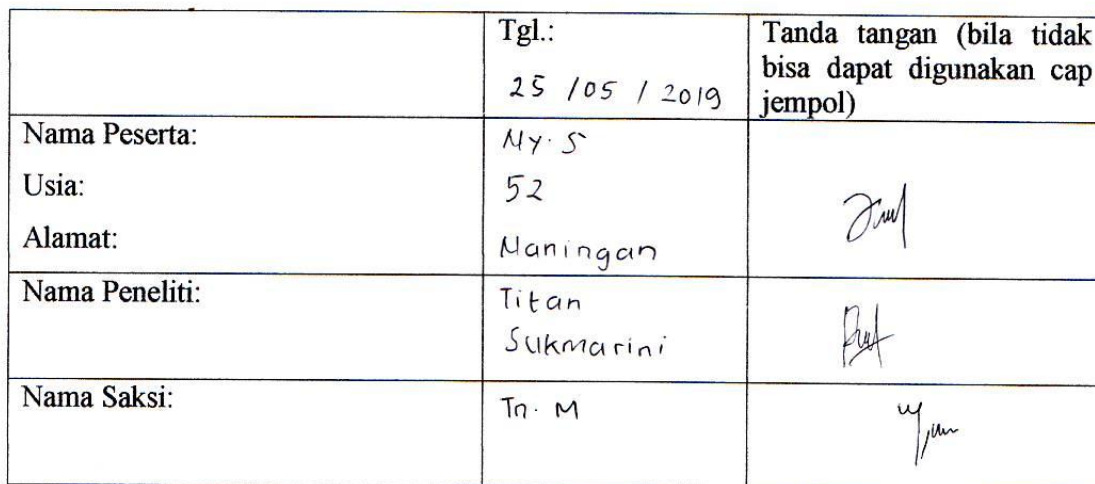 Tgl.:
25 / 05 / 2019
Tanda tangan (bila tidak
bisa dapat digunakan cap
jempol)
Nama Peserta:
Ny. S
Usia:
52
Alamat:
Maningan
Nama Peneliti:
Titan
Sukmarini
Nama Saksi:
Tn. M